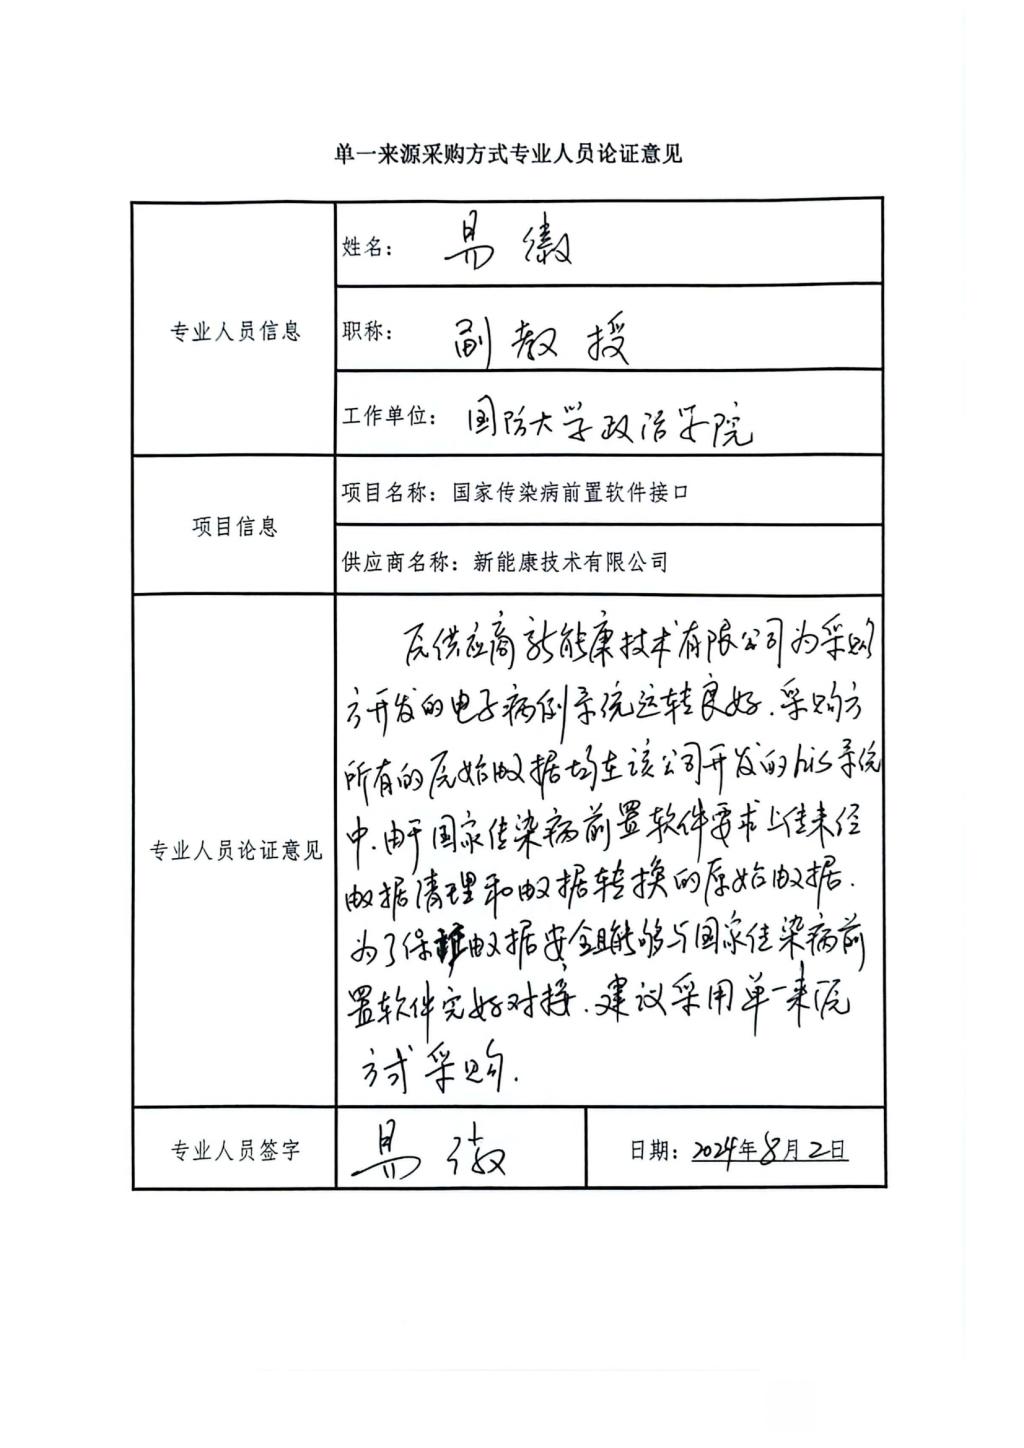 单一来源采购方式专业人员论证意见
专业人员信息
姓名：易徽
职称：副教授
工作单位：国防大学政治学院
项目信息
项目名称：国家传染病前置软件接口
供应商名称：新能康技术有限公司
专业人员论证意见
原供应商新能康技术有限公司为采购
方开发的电子病例系统运转良好.采购方
所有的原始数据均在该公司开发的his系统
中.由于国家传染病前置软件要求上传未经
数据清理和数据转换的原始数据.
为了保证数据安全且能够与国家传染病前
置软件完好对接.建议采用单一来源
方式采购.
专业人员签字
易徽
日期：2024年8月2日